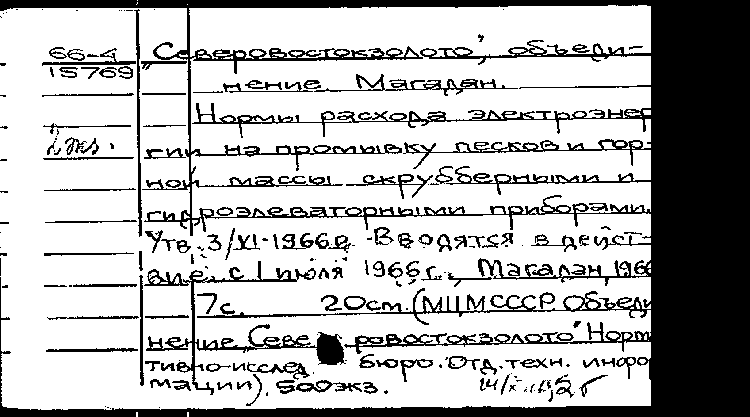 66-4
15769
2 экз.
"Северовостокзолото", объеди-
нение. Магадан.
Нормы расхода электроэнер
гии на промывку песков и гор-
ной массы скрубберными и
гидроэлеваторными приборами.
Утв. 3/XI-1966г. Вводятся в дейст-
вие с 1 июля 1966г., Магадан, 1966
7с. 20см. (МЦМСССР. Объеди
нение „Севе ровостокзолото" Норм
тивно-исслед. бюро. Отд. техн. инфо
мации). 500экз.